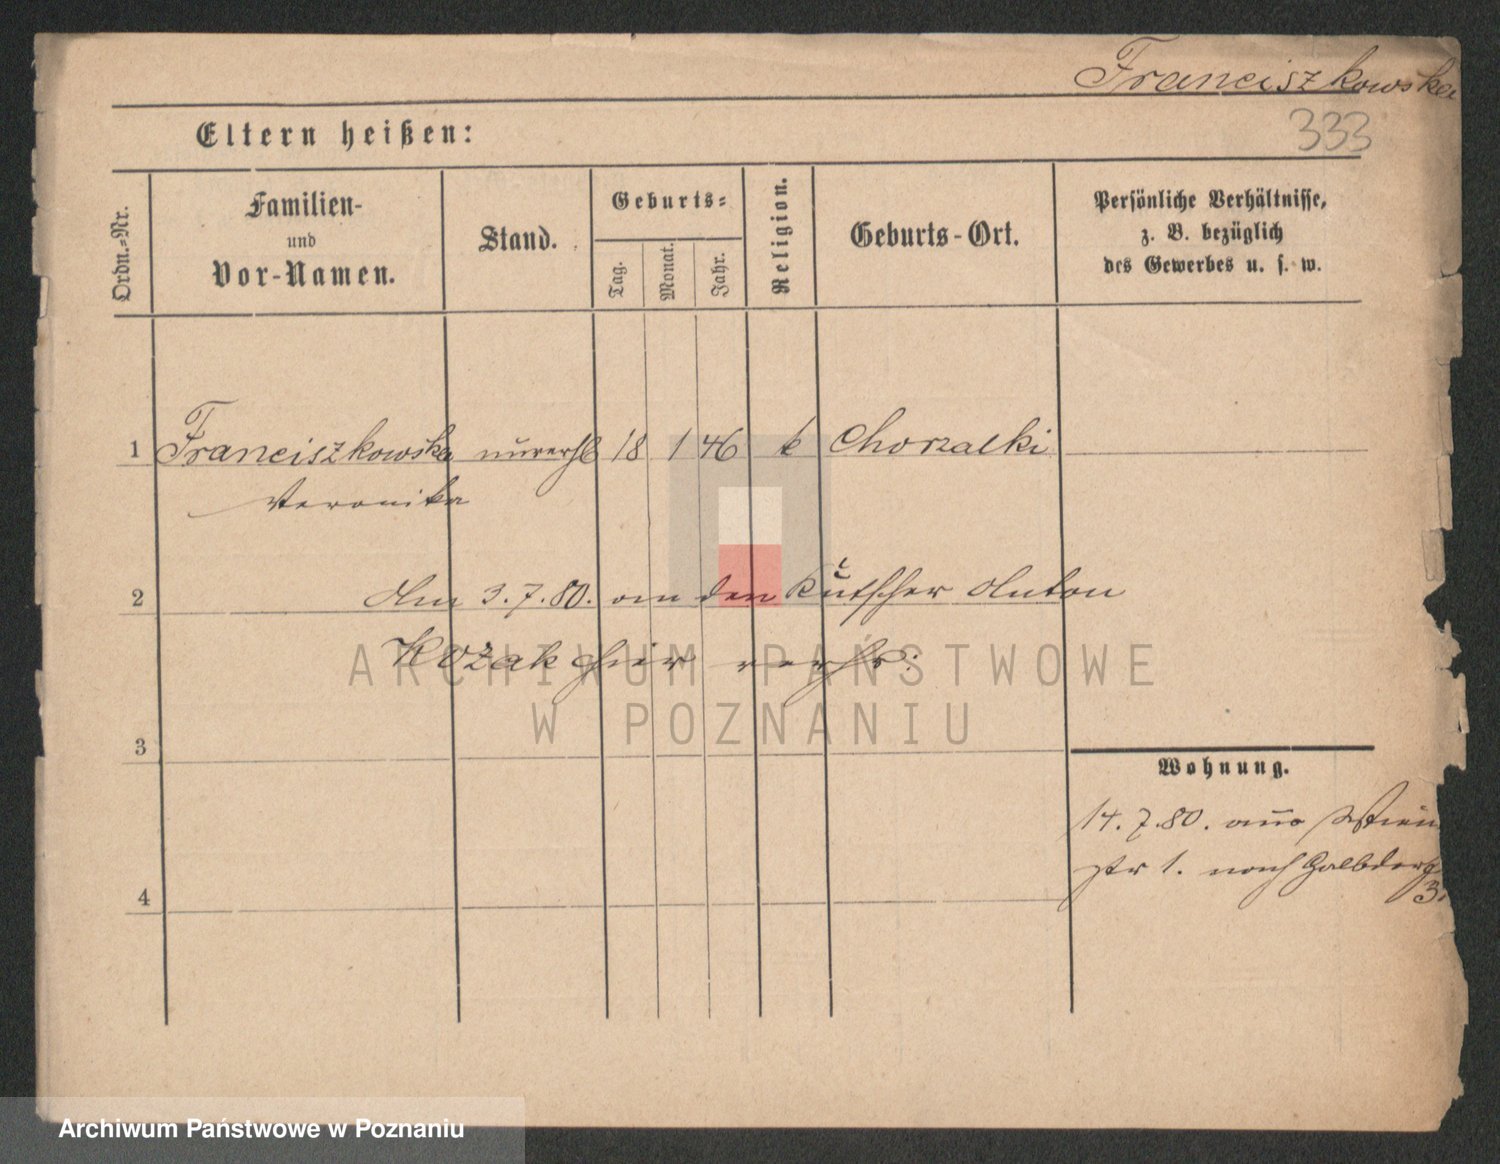 Franciszkowska
333
Eltern heißen:
Ordn.-Nr.
Familien-
und
Vor-Namen.
Stand.
Geburts-
Tag.
Monat.
Jahr.
Religion.
Geburts-Ort.
Persönliche Verhältnisse,
z. B. bezüglich
des Gewerbes u. s. w.
1 Franciszkowska unverh 18 1 46 k Chorzalki
Veronika
2 Am 3.7.80. an den Kutscher Anton
Kozak hier verh:
ARCHIWUM PAŃSTWOWE
W POZNANIU
3
Wohnung.
14.7.80. aus
str 1. nach
3.
4
Archiwum Państwowe w Poznaniu